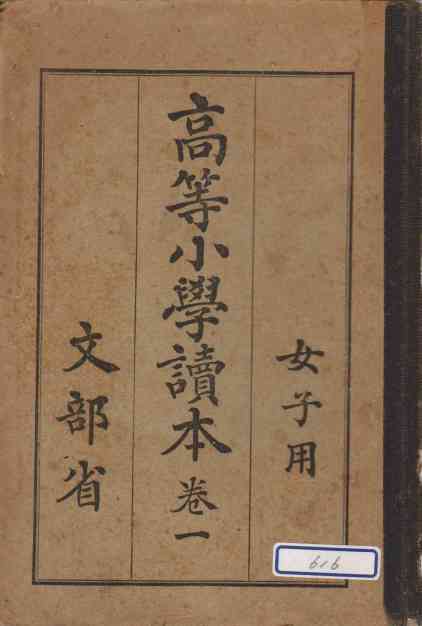 女子用
高等小學讀本 卷一
文部省
616